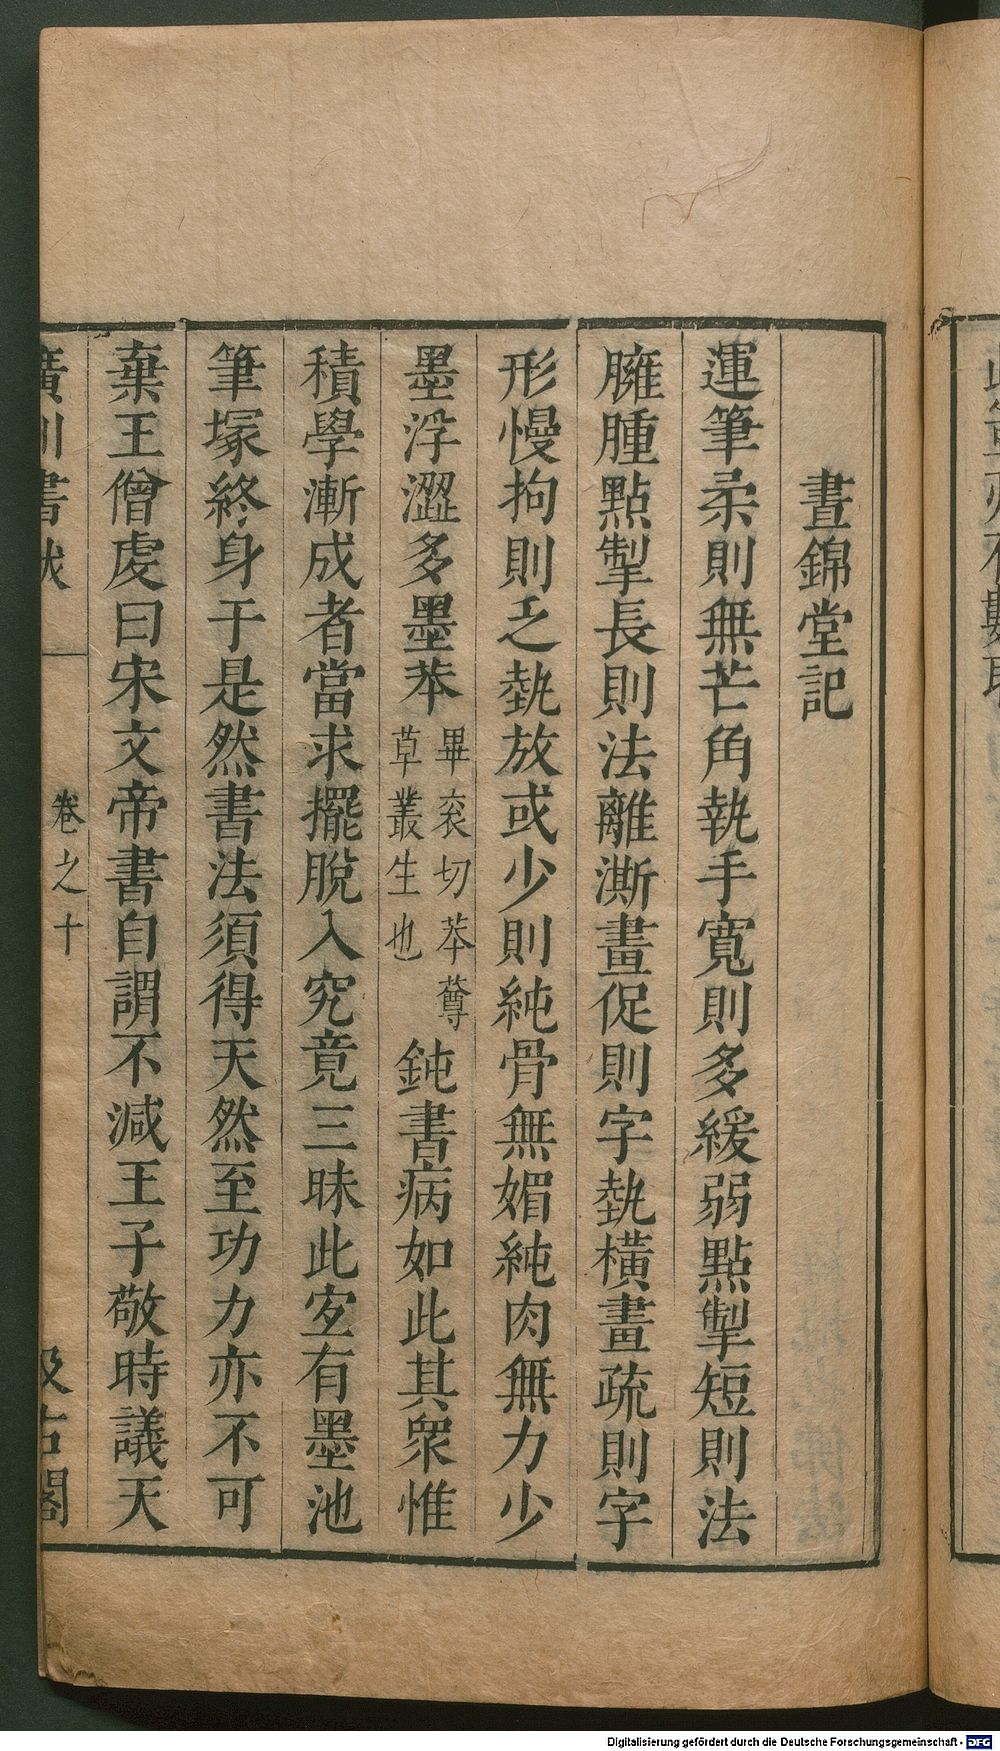 晝錦堂記
運筆柔則無芒角執手寬則多緩弱點掣短則法
臃腫點掣長則法離澌畫促則字埶橫畫疏則字
形慢拘則乏埶放或少則純骨無媚純肉無力少
墨浮澀多墨苯畢衮切苯䔿草叢生也鈍書病如此其衆惟
積學漸成者當求擺脫入究竟三昧此宐有墨池
筆塚終身于是然書法須得天然至功力亦不可
棄王僧虔曰宋文帝書自謂不减王子敬時議天
廣川書跋 卷之十 汲古閣
Digitalisierung gefördert durch die Deutsche Forschungsgemeinschaft - DFG